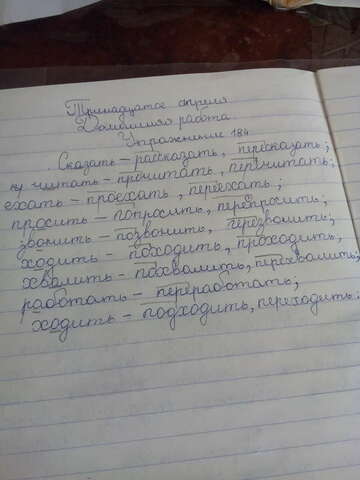 Тринадцатое апреля
Домашняя работа
Упражнение 184
Сказать - рассказать, пересказать;
читать - прочитать, перечитать;
ехать - проехать, переехать;
просить - попросить,
звонить - позвонить, перезвонить;
ходить - походить, проходить,
хвалить - похвалить, перехвалить;
работать - переработать;
ходить - подходить, переходить: